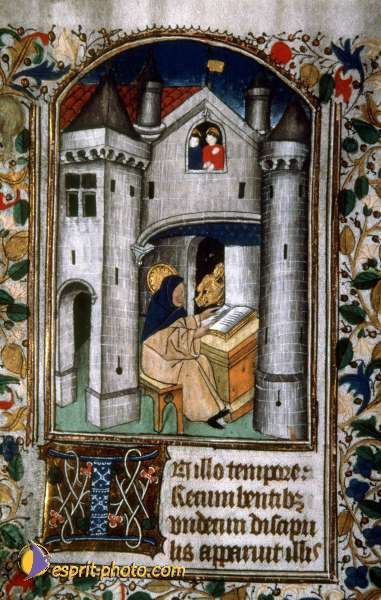 IN illo tempore:
Recumbentibꝫ
undecim discipu
lis apparuit illis
esprit-photo.com